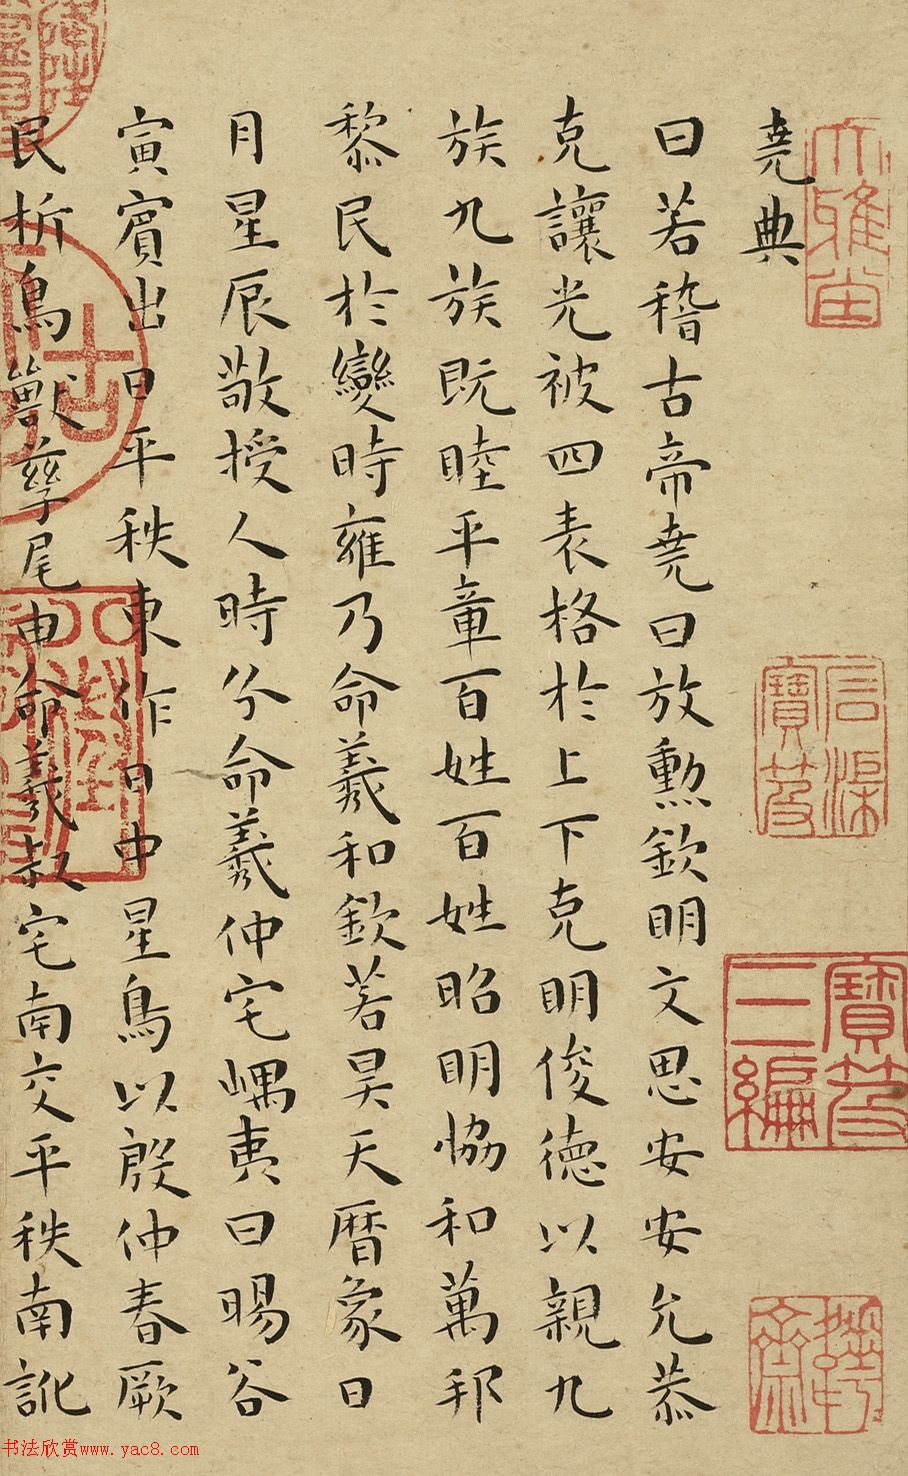 堯典
曰若稽古帝堯曰放勲欽明文思安安允恭
克讓光被四表格於上下克明俊德以親九
族九族既睦平章百姓百姓昭明協和萬邦
黎民於變時雍乃命羲和欽若昊天曆象日
月星辰敬授人時分命羲仲宅嵎夷曰暘谷
寅賓出日平秩東作日中星鳥以殷仲春厥
民析鳥獸孳尾申命羲叔宅南交平秩南訛
寶笈三編
書法欣赏www.yac8.com